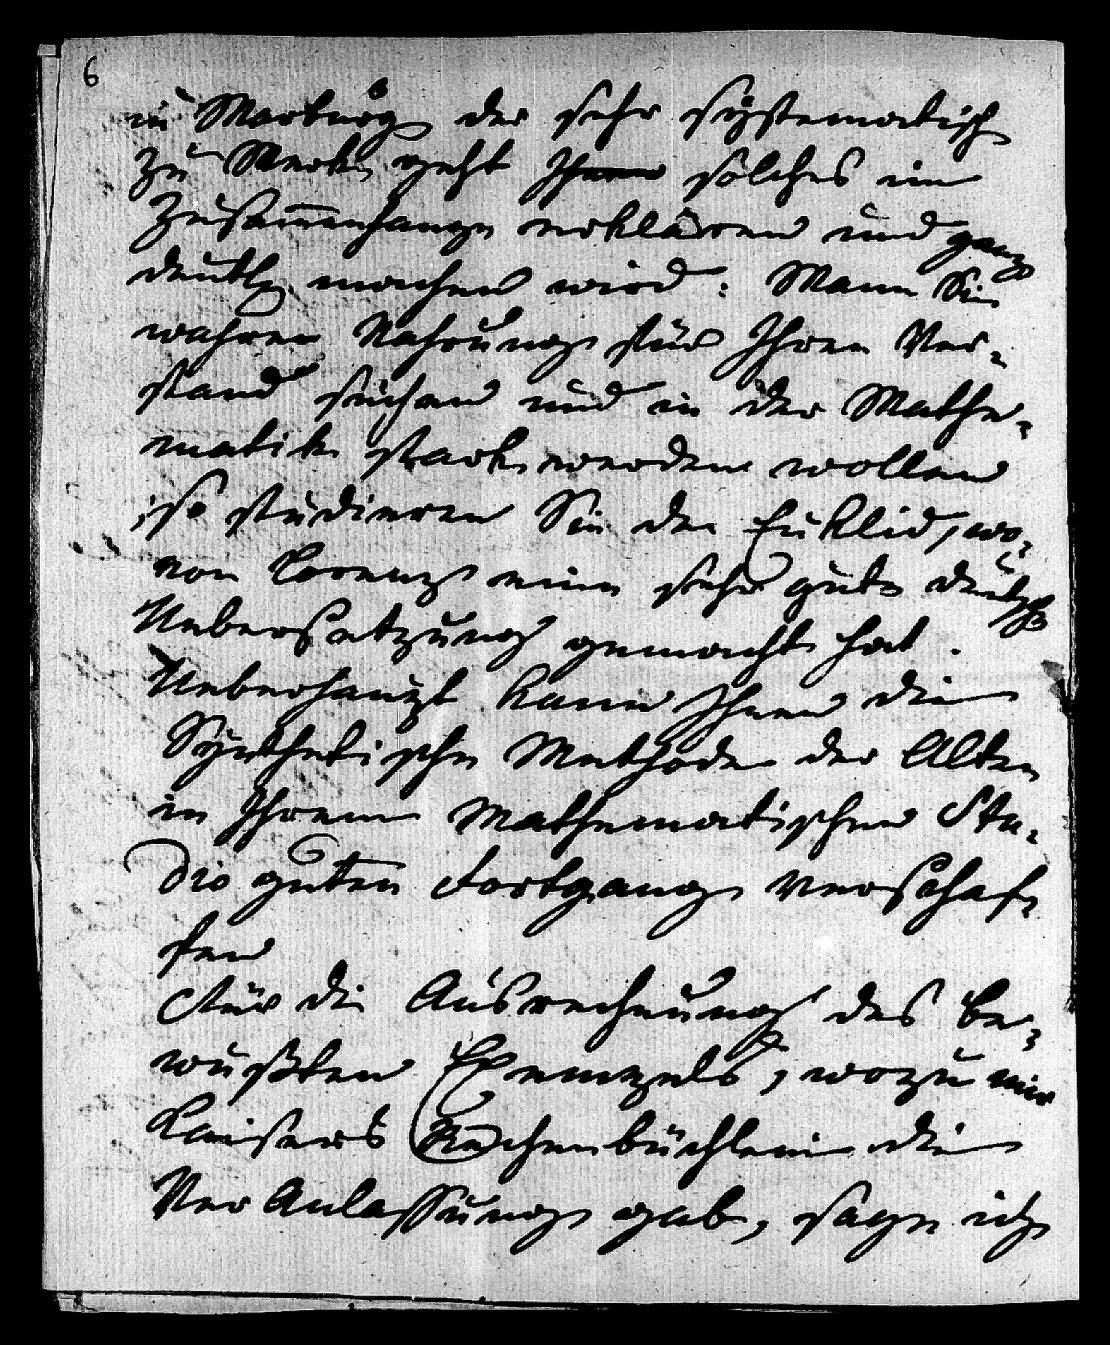 6
in Marburg der sehr systematisch
zu Werke geht Ihnen solches im
Zusammenhange erklären und ganz
deutl machen wird. Wann Sie
wahren Nahrung für Ihren Ver-
stand suchen und in der Mathe-
matik stark werden wollen
so studieren Sie den Euklid, wo-
von Lorenz eine sehr gute deutsche
Uebersetzung gemacht hat.
Ueberhaupt kann Ihnen die
Synthetische Methode der Alten
in Ihrem Mathematischen Stu-
dio guten Fortgang verschaf-
fen
Für die Ausrechnung des be-
wußten Exempels, wozu mir
Kaisers Rechenbüchlein die
Veranlassung gab, sage ich